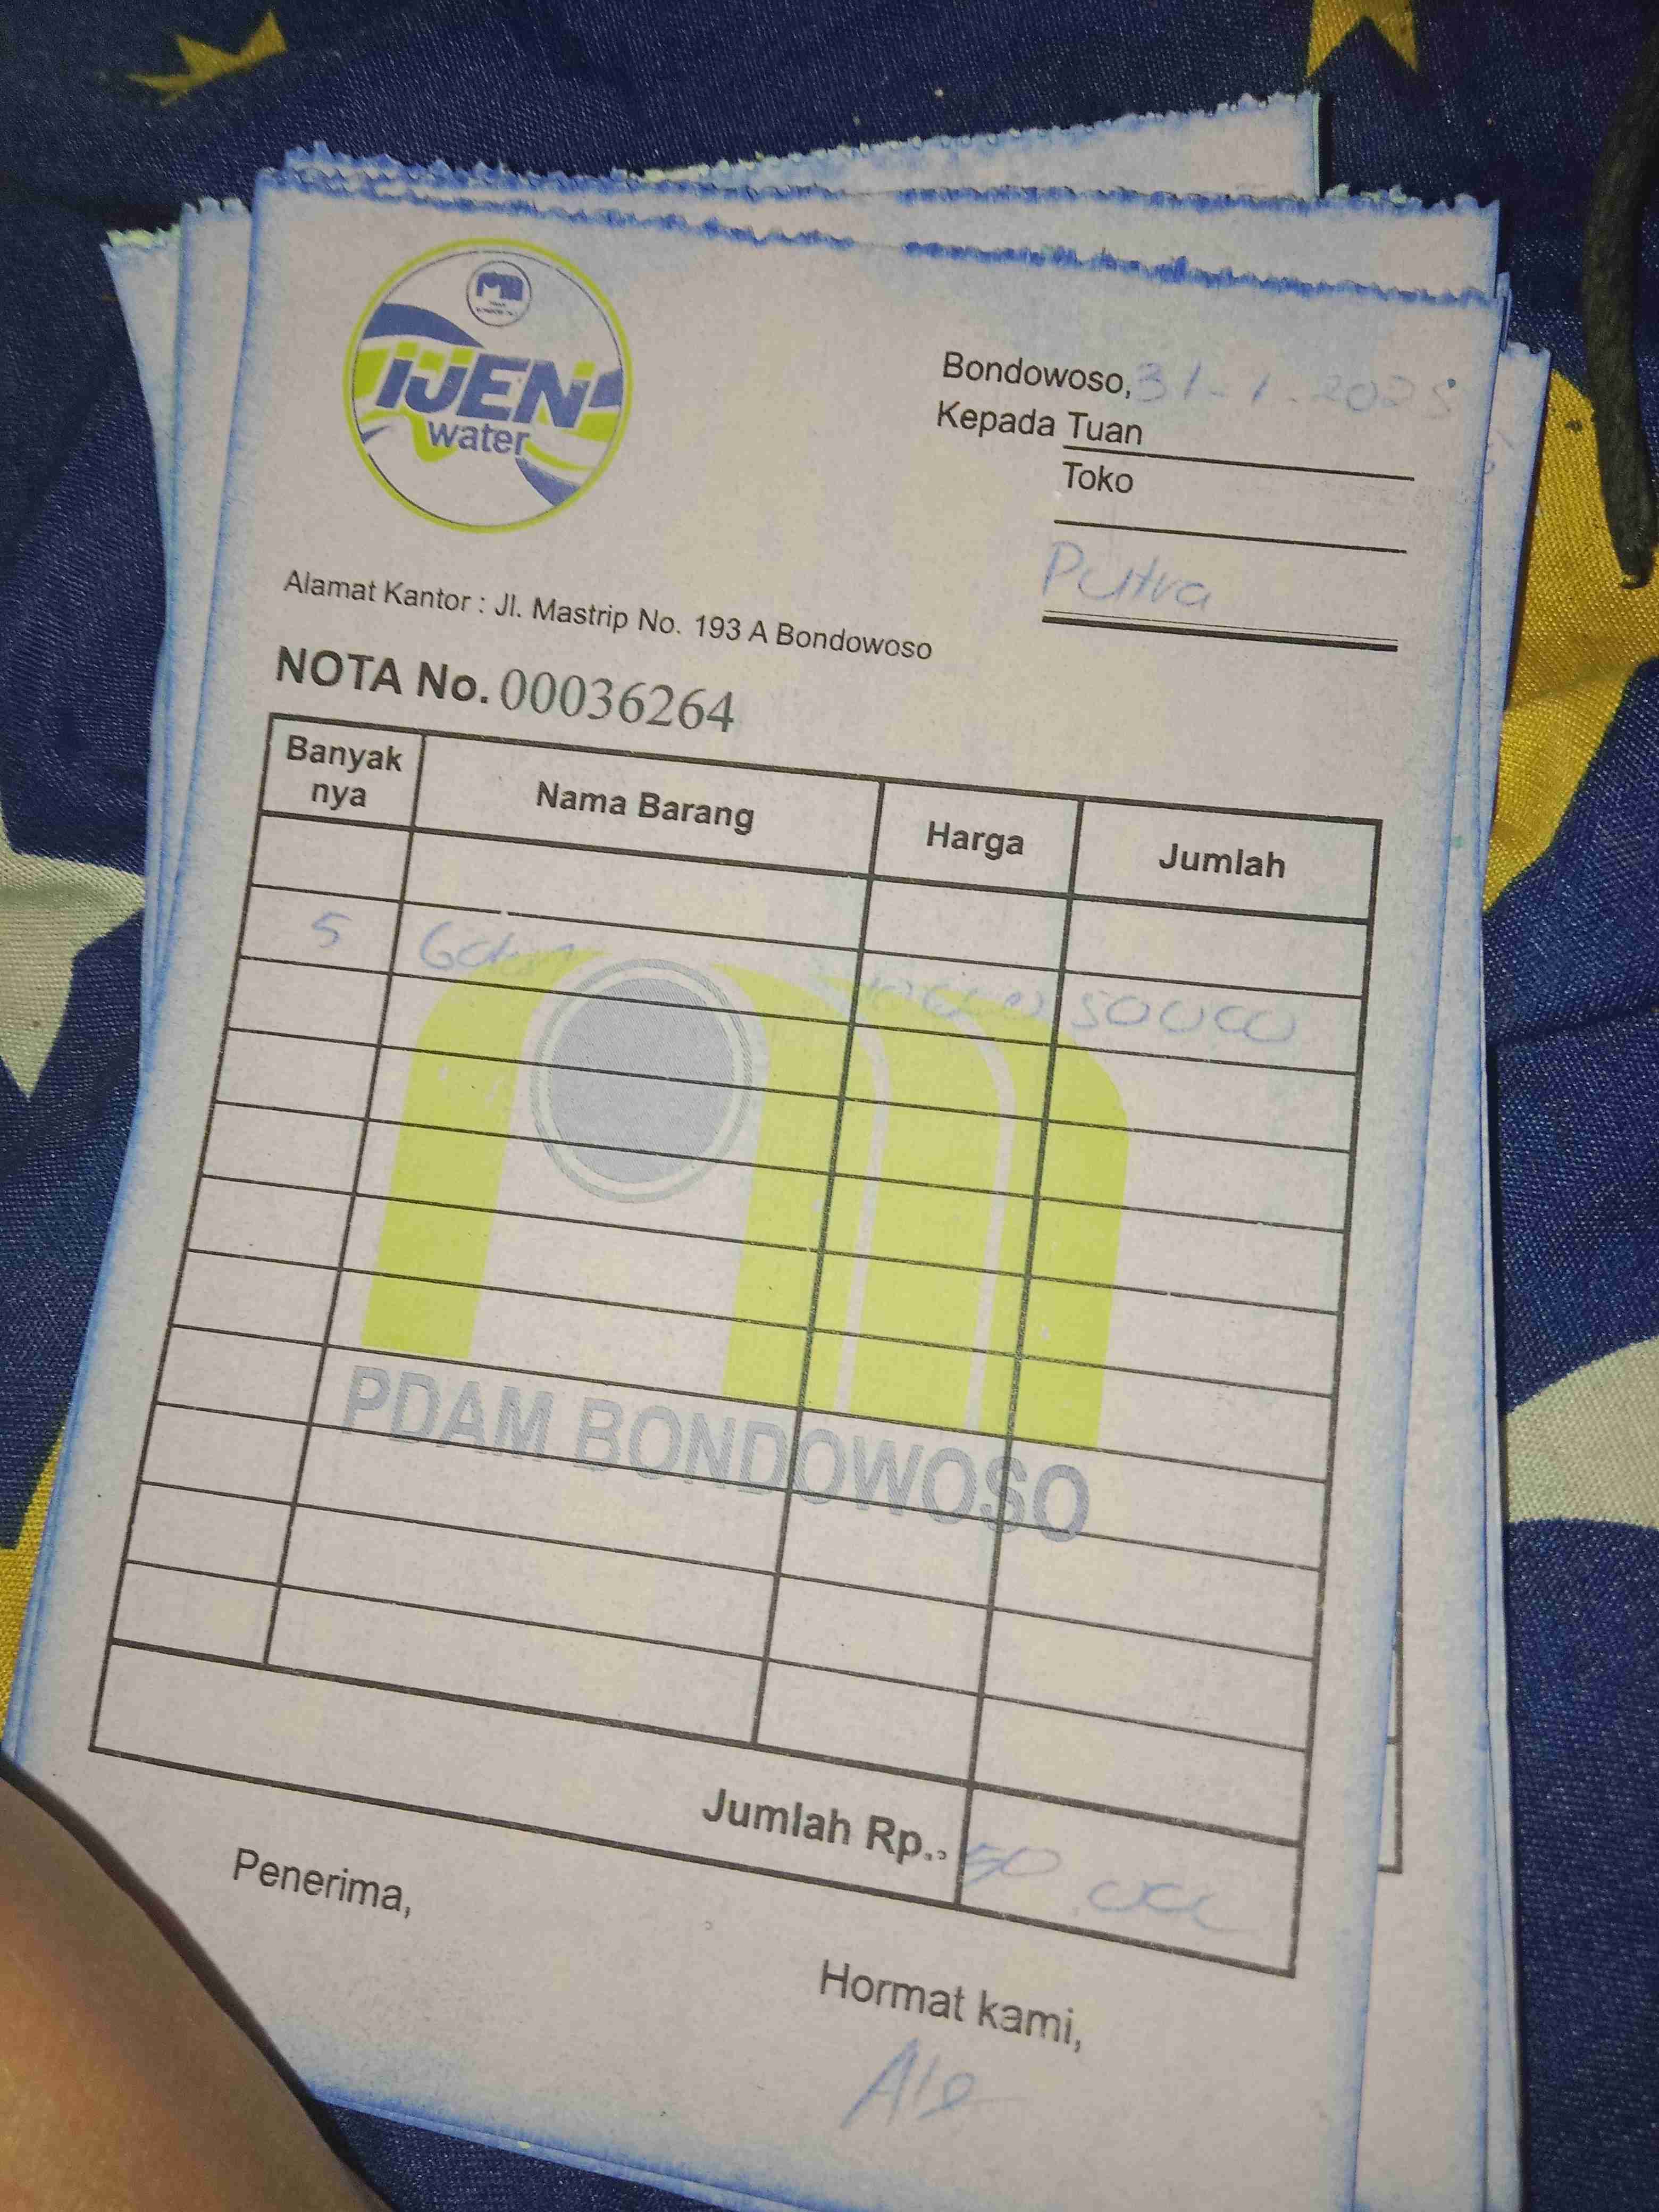 IJEN
water
Bondowoso, 31-1-2025
Kepada Tuan
Toko
Putra
Alamat Kantor : Jl. Mastrip No. 193 A Bondowoso
NOTA No. 00036264
Banyak nya Nama Barang Harga Jumlah
5 50000
PDAM BONDOWOSO
Jumlah Rp.. 50.000
Penerima,
Hormat kami,